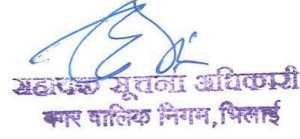 सहायक सूचना अधिकारी
नगर पालिक निगम, भिलाई